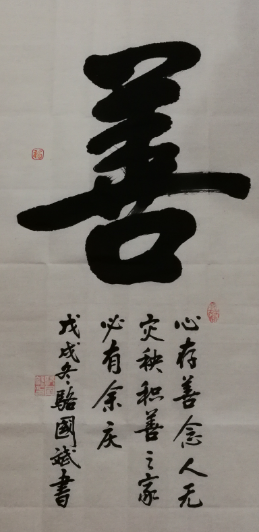 善
心存善念人无
灾秧积善之家
必有余庆
戊戌冬駱國斌書